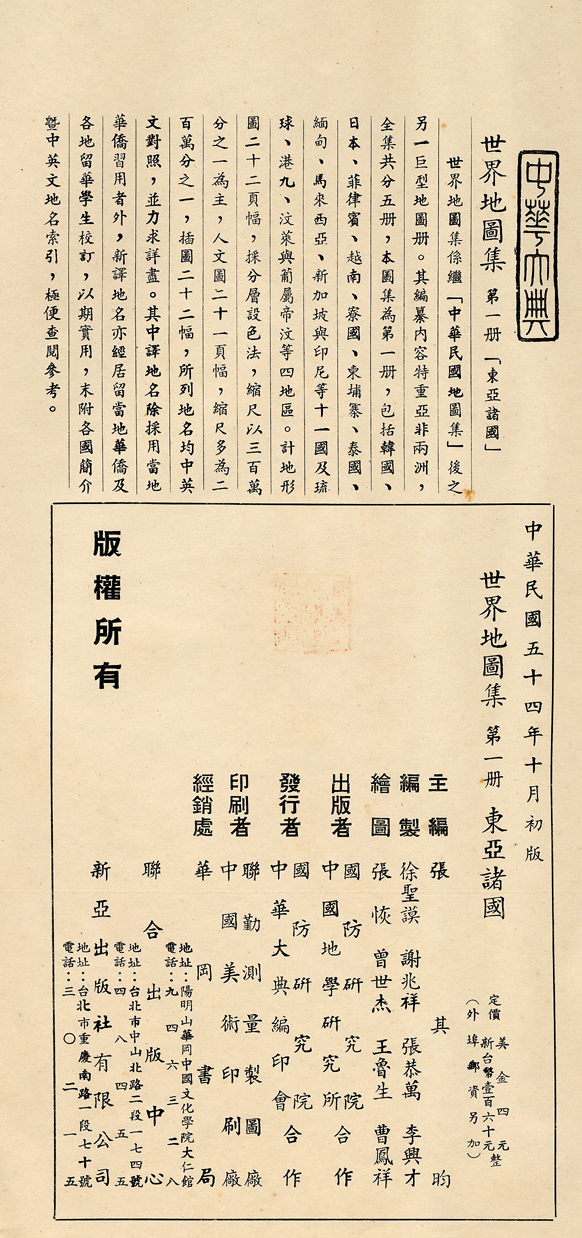 中華大典
世界地圖集 第一册「東亞諸國」
世界地圖集係繼「中華民國地圖集」後之
另一巨型地圖册。其編纂内容特重亞非兩洲，
全集共分五册，本圖集為第一册，包括韓國、
日本、菲律賓、越南、寮國、柬埔寨、泰國、
緬甸、馬來西亞、新加坡與印尼等十一國及琉
球、港九、汶萊與葡屬帝汶等四地區。計地形
圖二十二頁幅，採分層設色法，縮尺以三百萬
分之一為主，人文圖二十一頁幅，縮尺多為二
百萬分之一，插圖二十二幅，所列地名均中英
文對照，並力求詳盡。其中譯地名除採用當地
華僑習用者外，新譯地名亦經居留當地華僑及
各地留華學生校訂，以期實用，末附各國簡介
暨中英文地名索引，極便查閱參考。
中華民國五十四年十月初版
世界地圖集 第一册 東亞諸國
定價 美金四元
新台幣壹百六十元整
（外埠郵資另加）
主編 張其昀
編製 徐聖謨 謝兆祥 張恭萬 李興才
繪圖 張恢 曾世杰 王魯生 曹鳳祥
出版者 國防研究院
中國地學研究所 合作
發行者 國防研究院
中華大典編印會 合作
印刷者 聯勤測量製圖廠
中國美術印刷廠
經銷處 華岡書局
地址：陽明山華岡中國文化學院大仁館
電話：九四六三二八
聯合出版中心
地址：台北市中山北路二段一七四號
電話：四八四五五
新亞出版社有限公司
地址：台北市重慶南路一段七十號
電話：三〇二一五
版權所有